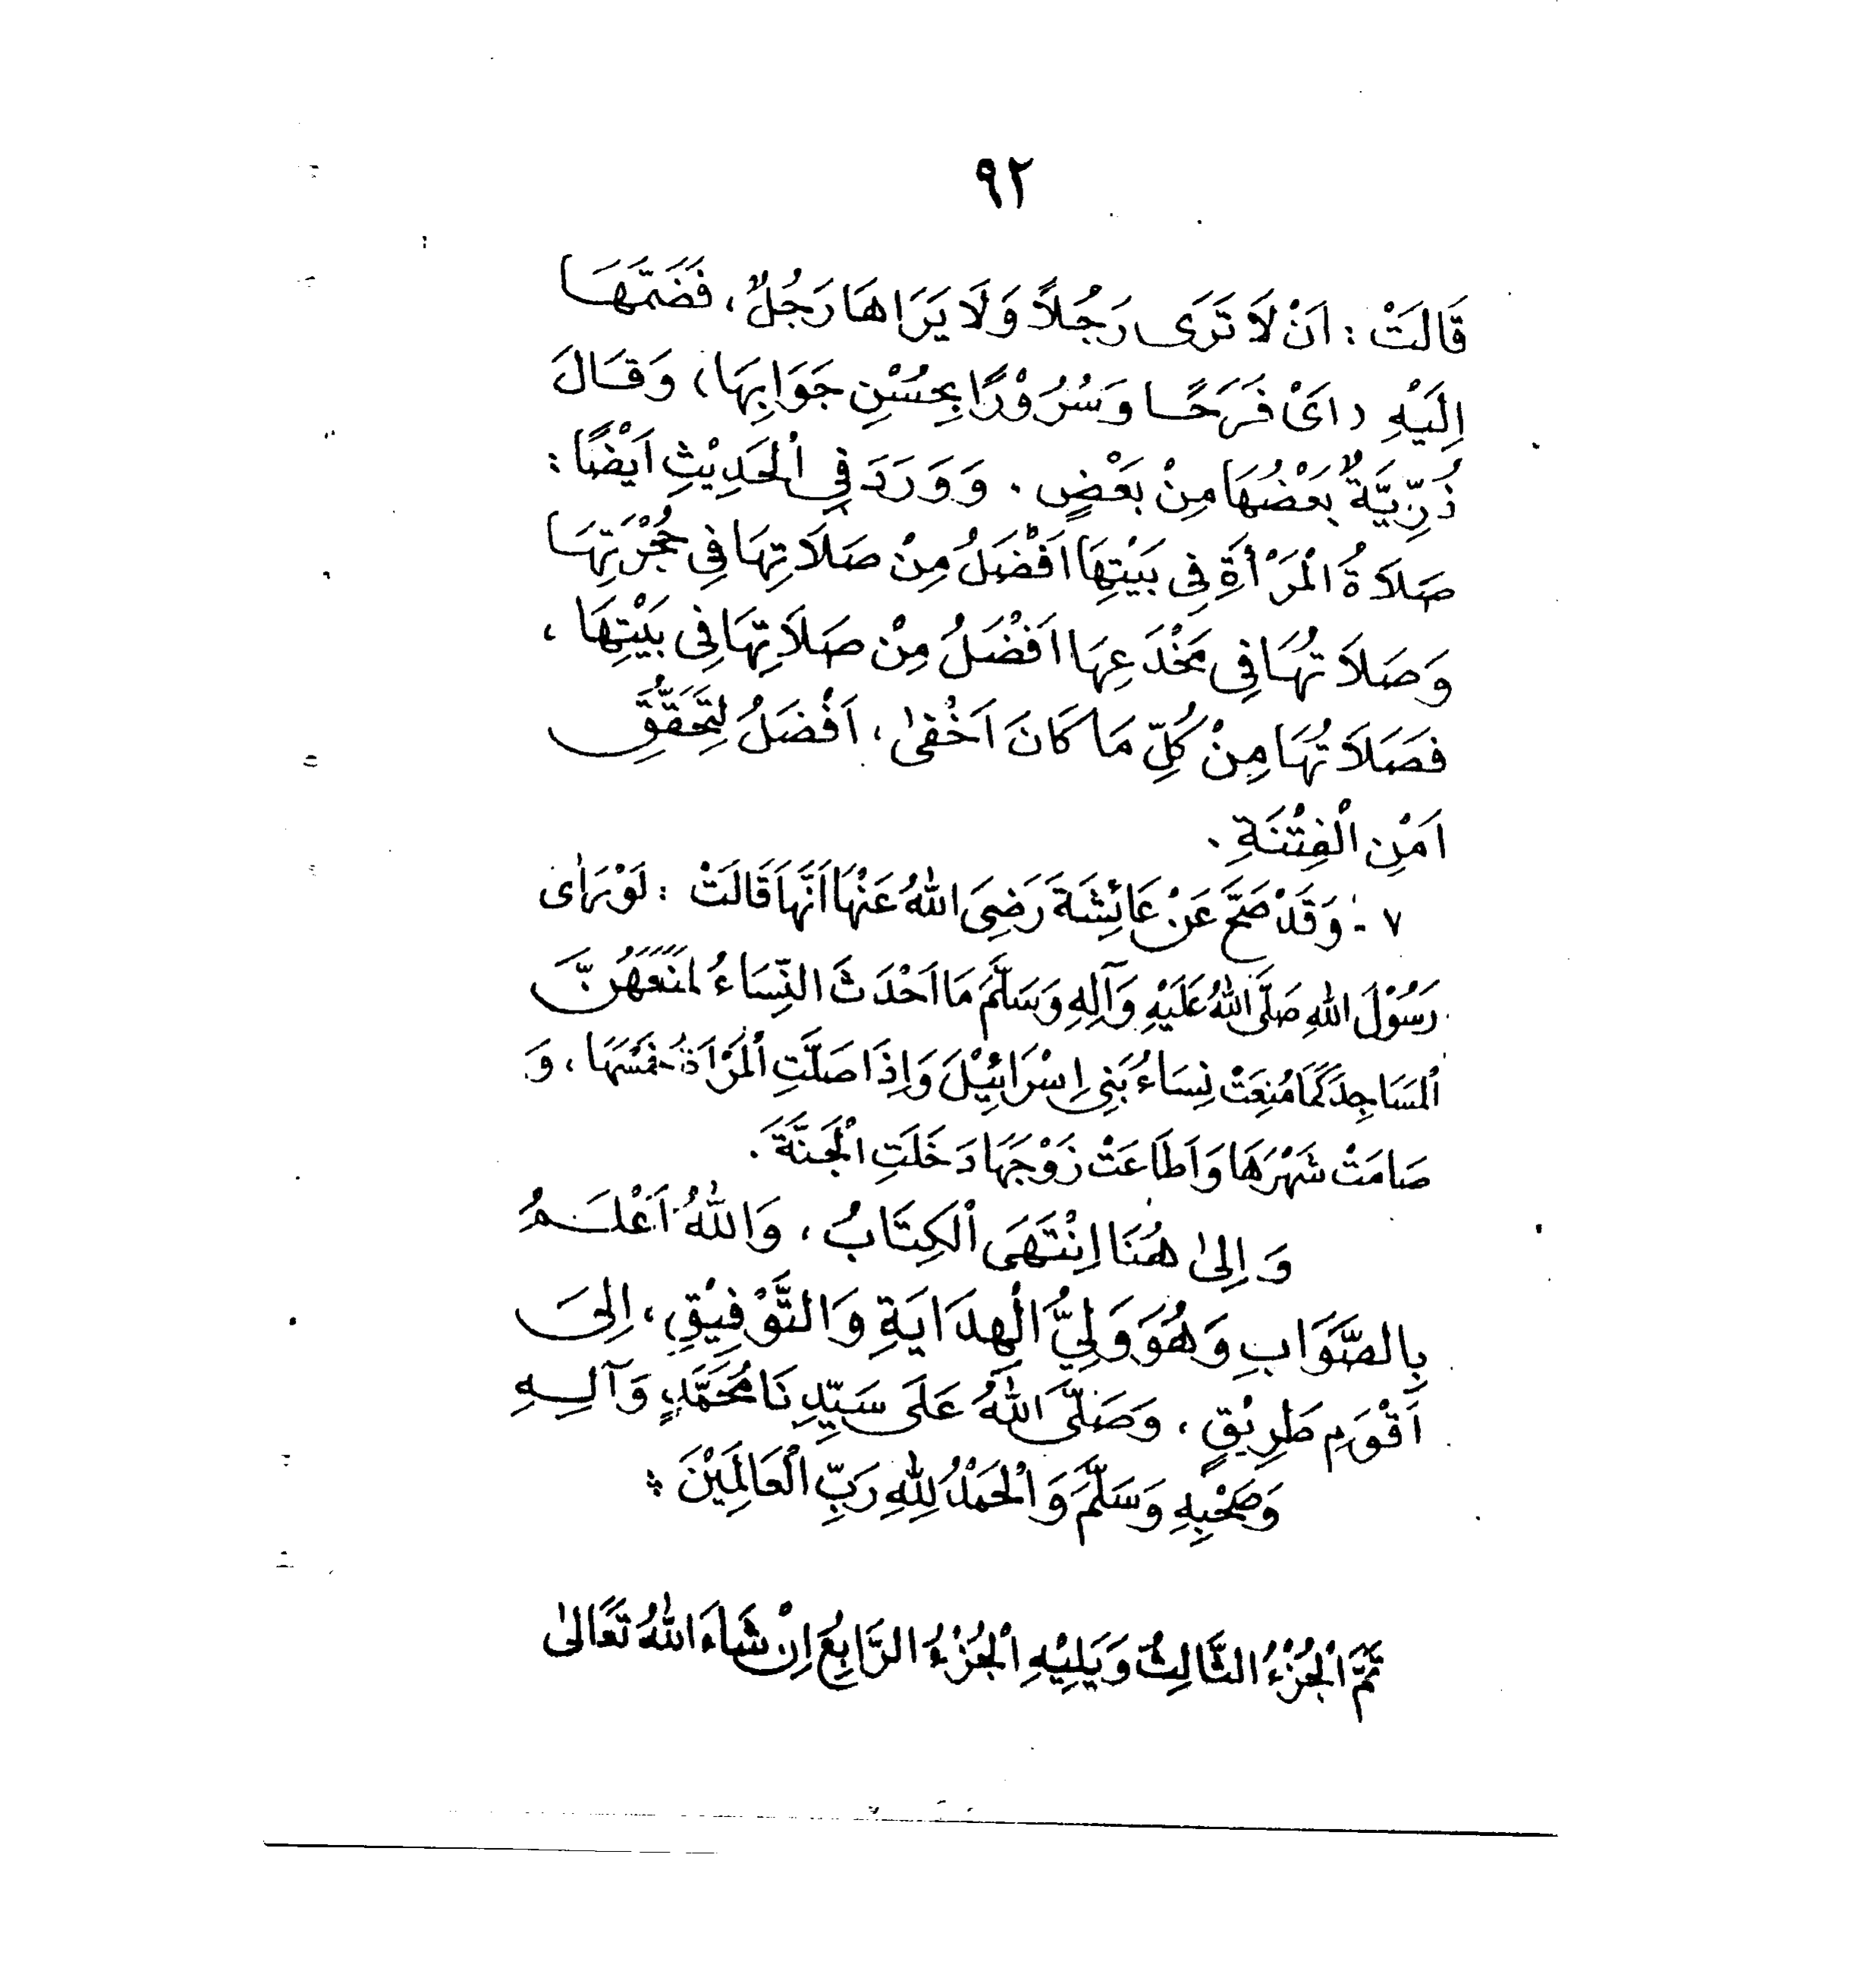 ٩٢
قَالَتْ : اَنْ لَا تَرَى رَجُلًا وَلَا يَرَاهَا رَجُلٌ ، فَضَمَّهَا
اِلَيْهِ (اَىْ فَرَحًا وَسُرُوْرًا بِحُسْنِ جَوَابِهَا) وَقَالَ
ذُرِّيَّةٌ بَعْضُهَا مِنْ بَعْضٍ . وَوَرَدَ فِي الْحَدِيْثِ اَيْضًا :
صَلَاةُ الْمَرْأَةِ فِى بَيْتِهَا اَفْضَلُ مِنْ صَلَاتِهَا فِى حُجْرَتِهَا
وَصَلَاتُهَا فِى مَخْدَعِهَا اَفْضَلُ مِنْ صَلَاتِهَا فِى بَيْتِهَا ،
فَصَلَاتُهَا مِنْ كُلِّ مَا كَانَ اَخْفىٰ ، اَفْضَلُ لِتَحَقُّقِ
اَمْنِ الْفِتْنَةِ .
٧ - وَقَدْ صَحَّ عَنْ عَائِشَةَ رَضِىَ اللهُ عَنْهَا اَنَّهَا قَالَتْ : لَوْ رَاٰى
رَسُوْلَ اللهِ صَلَّى اللهُ عَلَيْهِ وَآلِهِ وَسَلَّمَ مَا اَحْدَثَ النِّسَاءُ لَمَنَعَهُنَّ
الْمَسَاجِدَ كَمَا مُنِعَتْ نِسَاءُ بَنِى اِسْرَائِيْلَ وَاِذَا صَلَّتِ الْمَرْاَةُ خَمْسَهَا ، وَ
صَامَتْ شَهْرَهَا وَاَطَاعَتْ زَوْجَهَا دَخَلَتِ الْجَنَّةَ .
وَاِلىٰ هُنَا اِنْتَهَى الْكِتَابُ ، وَاللهُ اَعْلَمُ
بِالصَّوَابِ وَهُوَ وَلِيُّ الْهِدَايَةِ وَالتَّوْفِيْقِ ، اِلىَ
اَقْوَمِ طَرِيْقٍ ، وَصَلَّى اللهُ عَلَى سَيِّدِنَا مُحَمَّدٍ وَآلِهِ
وَصَحْبِهِ وَسَلَّمَ وَالْحَمْدُ لِلّٰهِ رَبِّ الْعَالَمِيْنَ :
تَمَّ الْجُزْءُ الثَّالِثُ وَيَلِيْهِ الْجُزْءُ الرَّابِعُ اِنْ شَاءَ اللهُ تَعَالىٰ